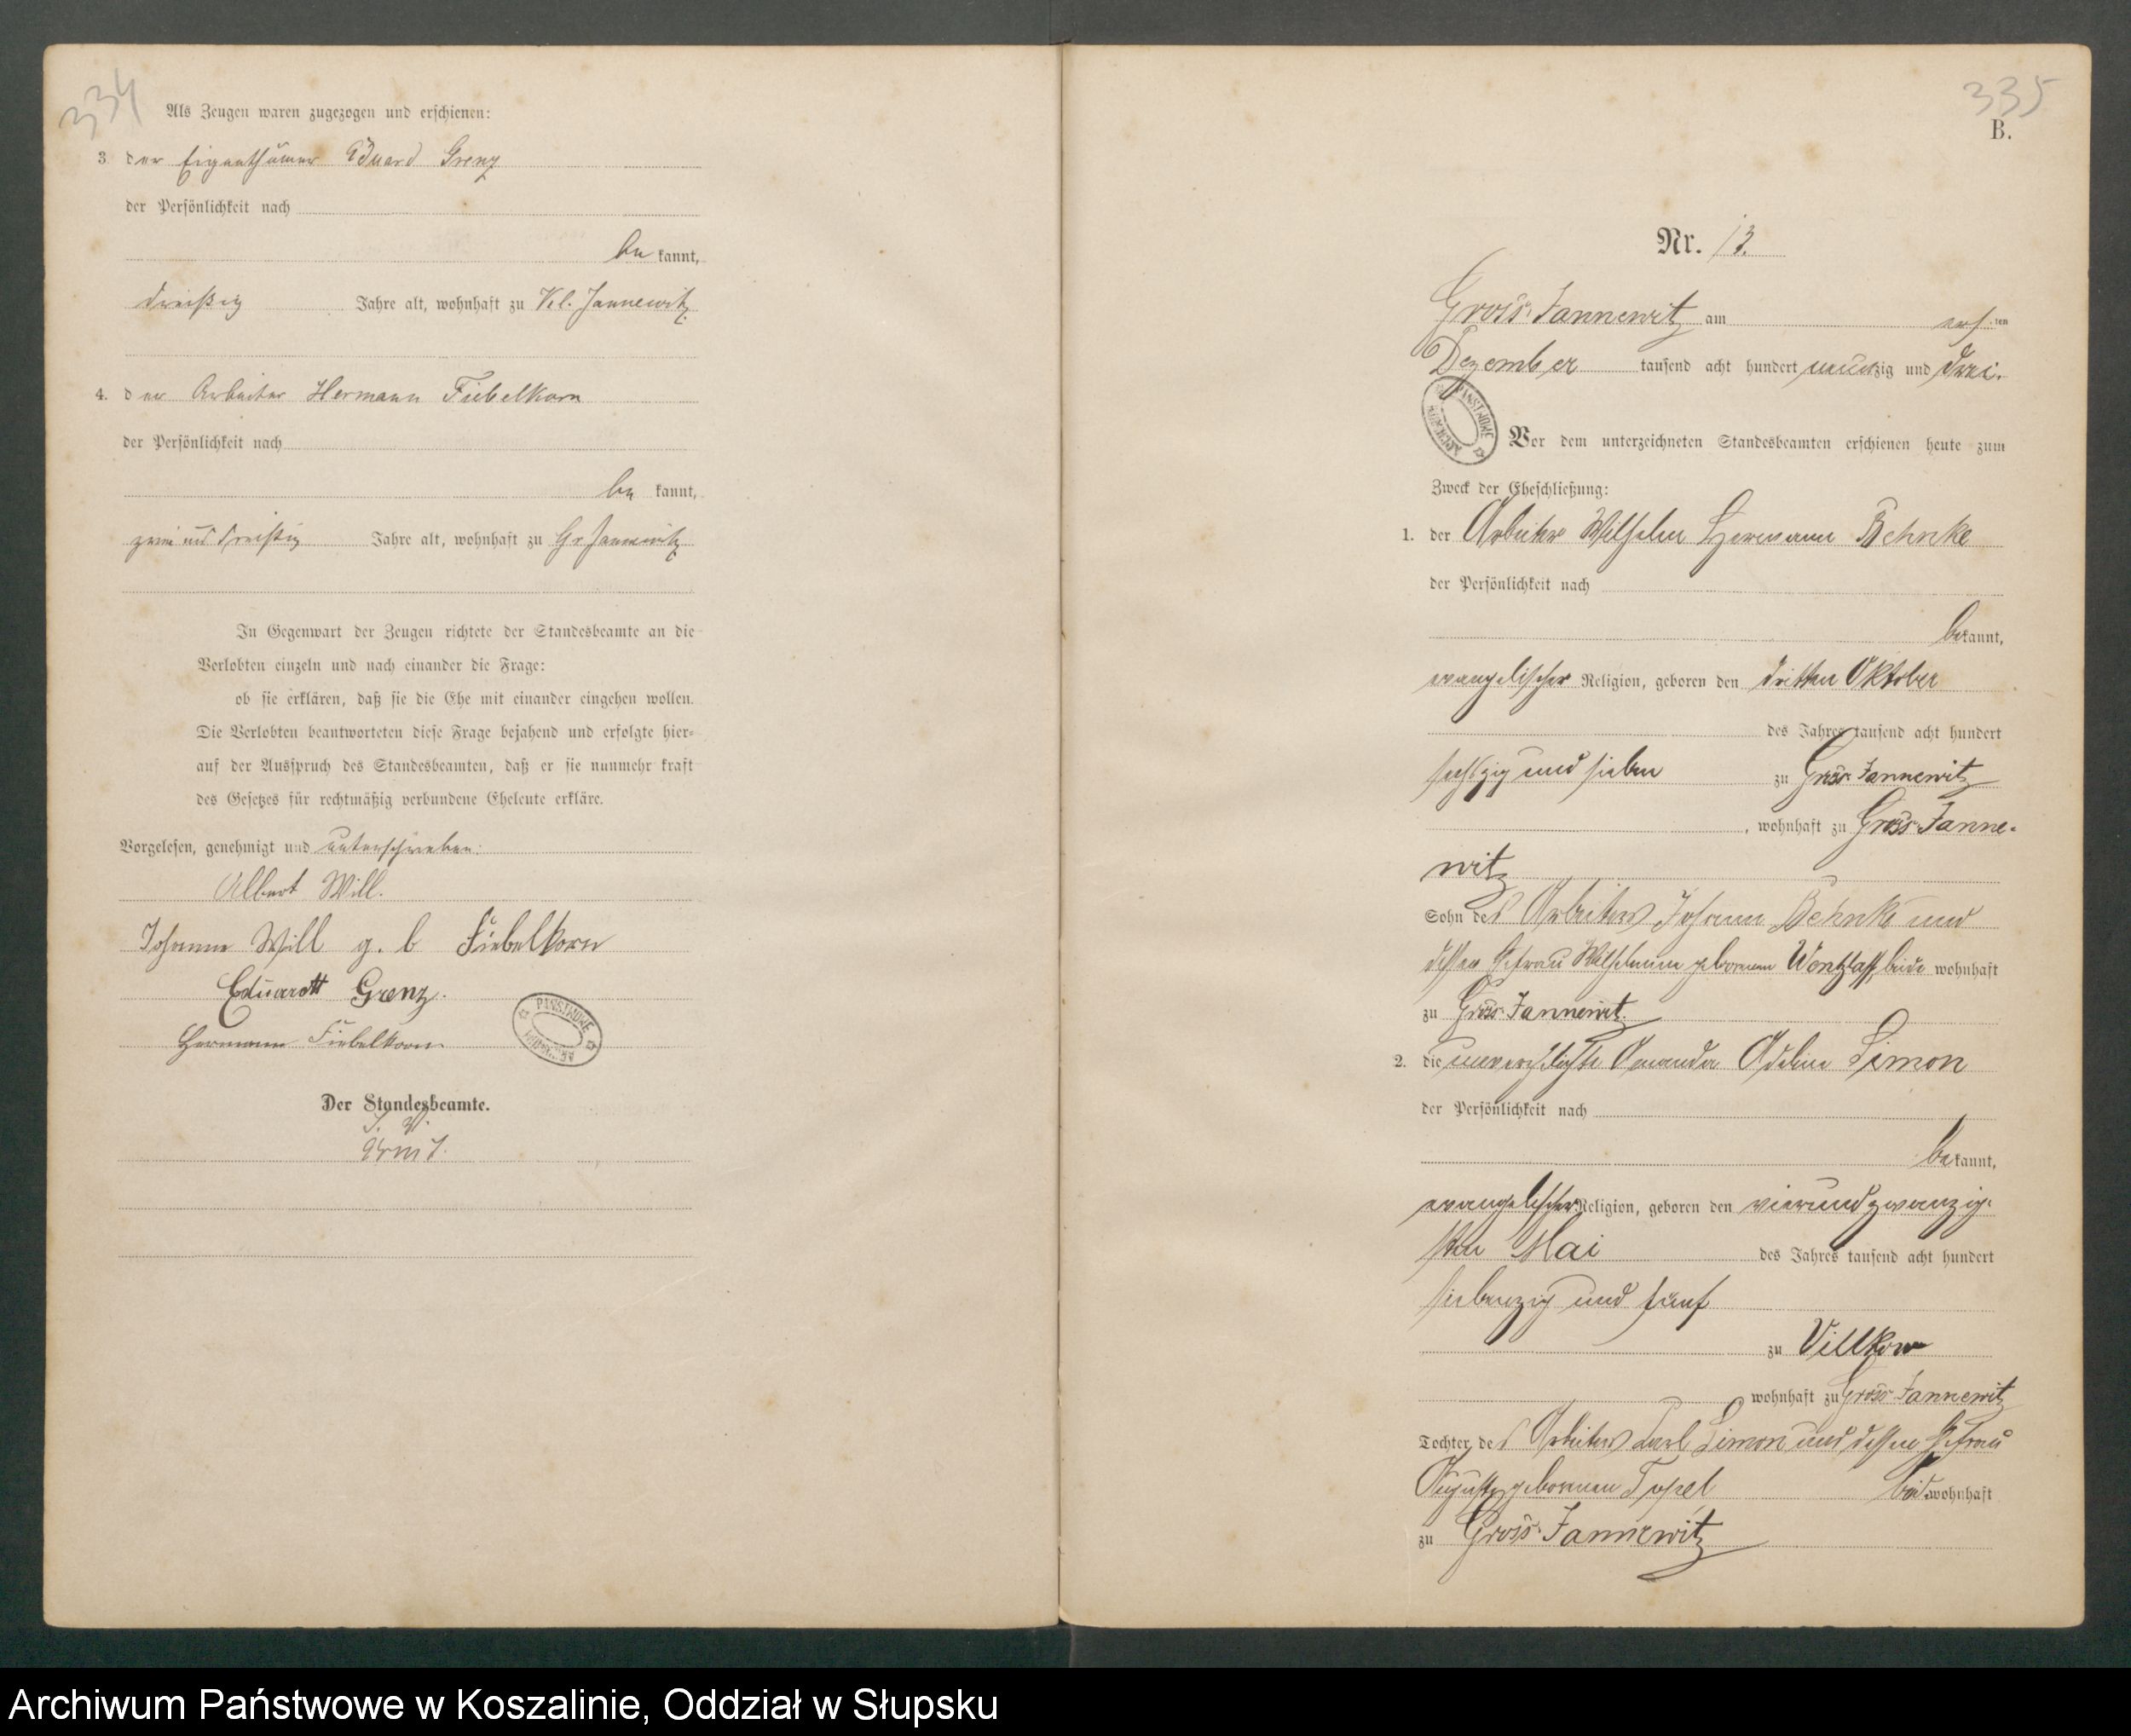 334
Als Zeugen waren zugezogen und erschienen:
3 der Eigenthümer Eduard Grenz
der Persönlichkeit nach
be kannt,
dreißig Jahre alt, wohnhaft zu Kl. Jannewitz
4. der Arbeiter Hermann Fiebelkorn
der Persönlichkeit nach
be kannt,
zwei und dreißig Jahre alt, wohnhaft zu Gr Jannewitz
In Gegenwart der Zeugen richtete der Standesbeamte an die
Verlobten einzeln und nach einander die Frage:
ob sie erklären, daß sie die Ehe mit einander eingehen wollen.
Die Verlobten beantworteten diese Frage bejahend und erfolgte hier-
auf der Ausspruch des Standesbeamten, daß er sie nunmehr kraft
des Gesetzes für rechtmäßig verbundene Eheleute erkläre.
Vorgelesen, genehmigt und unterschrieben:
Albert Will.
Johanne Will g. b Fiebelkorn
Eduardt Grenz.
Hermann Fiebelkorn
PAŃSTWOWE
Der Standesbeamte.
335
B.
Nr. 13.
Gross Jannewitz am ersten
Dezember tausend acht hundert neunzig und drei.
PAŃSTWOWE
Vor dem unterzeichneten Standesbeamten erschienen heute zum
Zweck der Eheschließung:
1. der Arbeiter Wilhelm Hermann Behnke
der Persönlichkeit nach
bekannt,
evangelischer Religion, geboren den dritten Oktober
des Jahres tausend acht hundert
sechszig und sieben zu Gross Jannewitz
, wohnhaft zu Gross Janne-
witz
Sohn des Arbeiters Johann Behnke und
dessen Ehefrau Wilhelmine geborenen Wentzlaff, beide wohnhaft
zu Gross Jannewitz.
2. die unverehelichte Amanda Adeline Simon
der Persönlichkeit nach
bekannt,
evangelischer Religion, geboren den vierundzwanzig-
sten Mai des Jahres tausend acht hundert
siebenzig und fünf
zu Villkow
wohnhaft zu Gross Jannewitz
Tochter des Arbeiters Carl Simon und dessen Ehefrau
Auguste geborenen Topel beide wohnhaft
zu Gross Jannewitz
Archiwum Państwowe w Koszalinie, Oddział w Słupsku